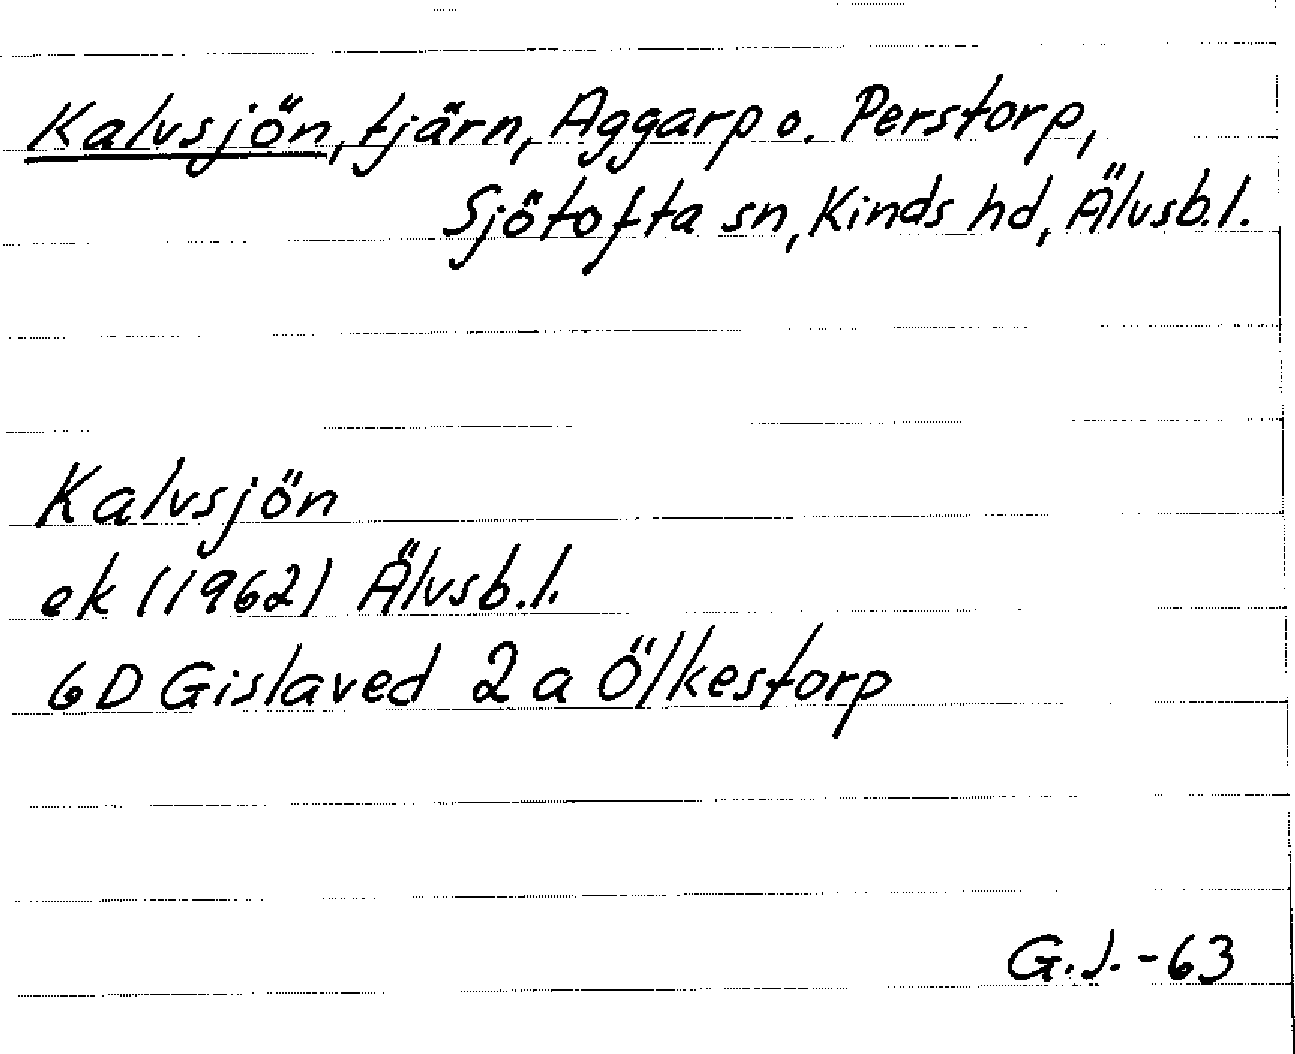 Kalvsjön, tjärn, Aggarp o. Perstorp,
Sjötofta sn, Kinds hd, Älvsb.l.
Kalvsjön
ek (1962) Älvsb.l.
6D Gislaved 2a Ölkestorp
G.J.-63